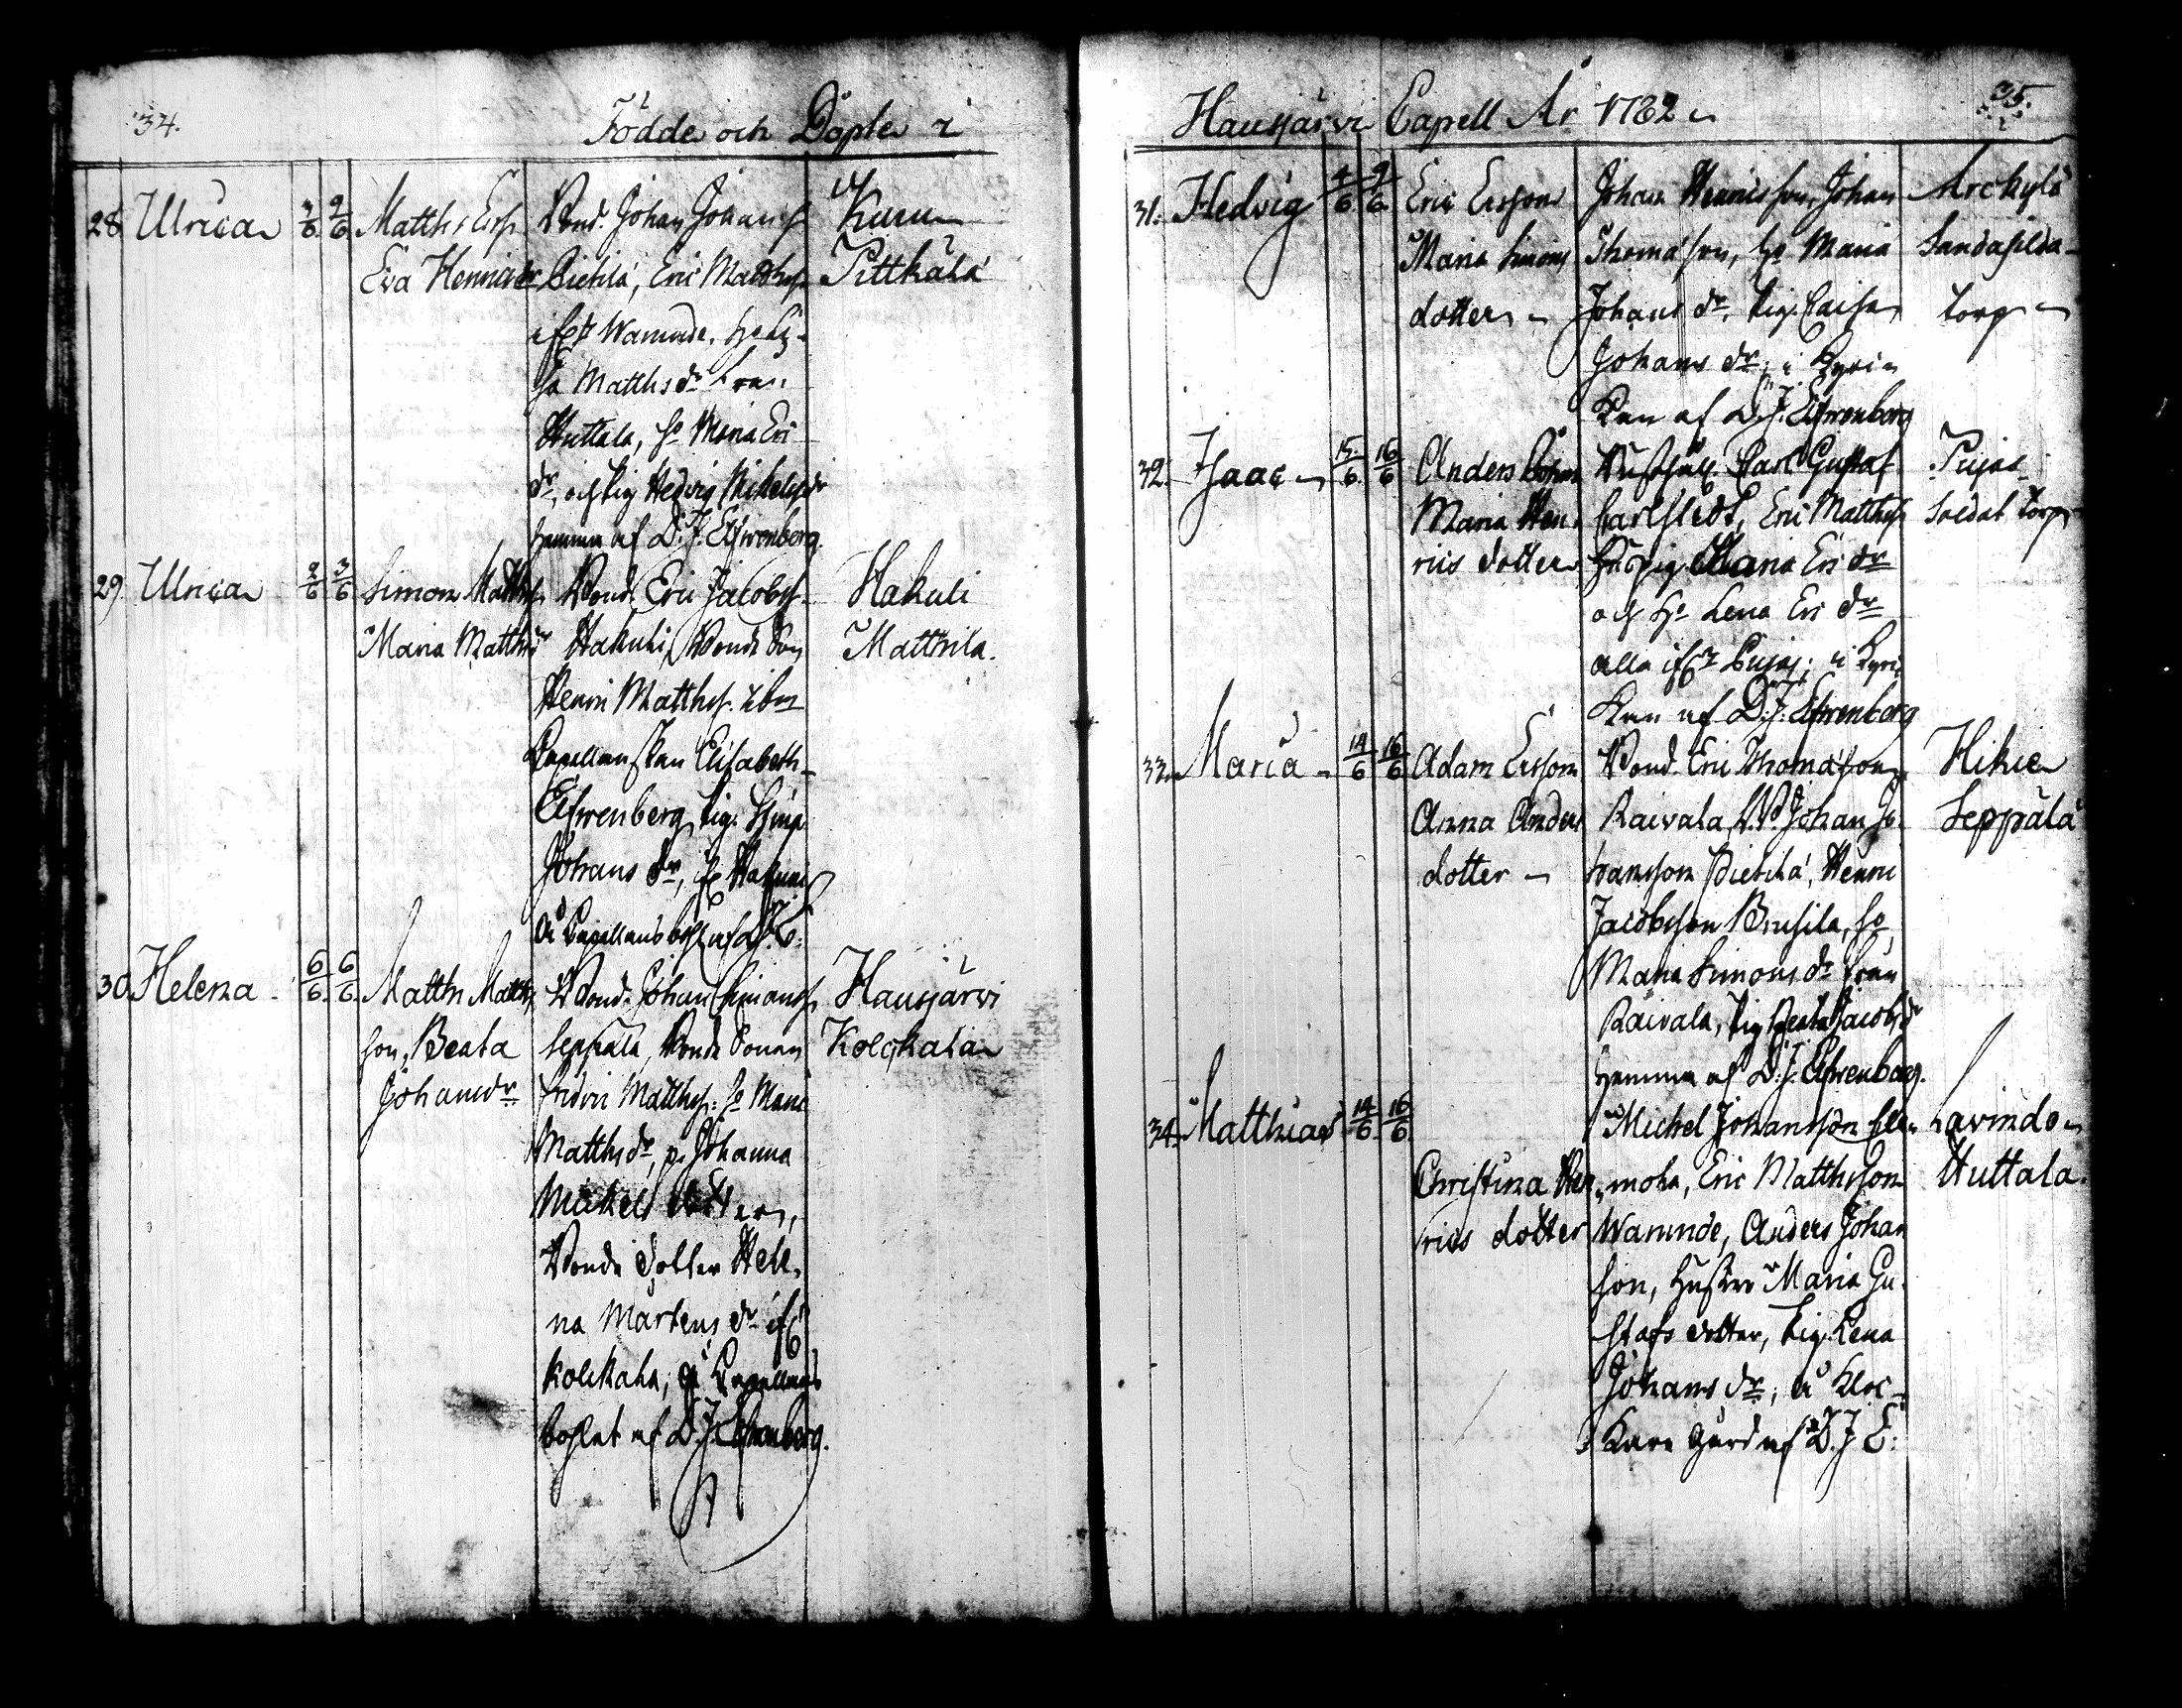 34.
Födde och Döpte i
28. Ulrica 2/6 2/6
Matths Ersn
Eva Henricdr
Bond. Johan Johans
Pietilä, Eric Matths
Wanunde,
sa Matthsdr
Huttala, Ho Maria Eri
dr, och pig Hedvig Michelsdr
hemma af D. J. Ehrenberg.
Kuru
Pittkälä
29 Ulrica 2/6 3/6
Simon Matths
Maria Matthsdr
Bond. Eric Jacobs
Hakuli, Bonde Son
Henri Matths.
Capellanskan Elisabeth
Ehrenberg, pig.
Johans dr,
Hakuli
Matthila.
30. Helena 6/6 6/6
Matths Matths
son, Beata
Johansdr
Bond. Johan Simons
Seppälä, Bonde Sonen
Matths. Ho Maria
Matthsdr, p. Johanna
Michels dotter,
Bonde dotter Hele,
na Mårtens dr
Kolckala, å Capellans
bohlet af D. J. Ehrenberg.
Hausjärvi
Kolckala
Hausjärvi Capell År 1782
35.
31. Hedvig 4/6 9/6
Eric Ersson
Maria Simons
dotter
Johan Henricsson, Johan
Thomasson, Ho Maria
Johans dr, pig. Caisa
Johans dr, i Kyri
kan af D. J. Ehrenberg
Arckylä
torp
32. Isaac 15/6 16/6
Anders
Maria Hen
rics dotter
Carl Gustaf
Carlstedt, Eric Matths
Maria Eri dr
och Ho Lena Eri dr
alla
Pujas; i Kyri
kan af D. J. Ehrenberg
Pujas
Soldat torp
33. Maria 14/6 16/6
Adam Ersson
Anna Anders
dotter
Bond. Eric Thomasson
Raivala, Johan Jo
hansson Pietilä, Henric
Jacobsson Brusila, Ho
Maria Simons dr från
Raivala, pig Beata Jacobsdr
hemma af D. J. Ehrenberg.
Hikie
Seppälä
34. Matthias 14/6 16/6
Christina Hen
rics dotter
Michel Johansson
moha, Eric Matthsson
Wanunde, Anders Johan
son, Hustru Maria Gu
stafs dotter, pig. Lena
Johans dr, å Kloc
kare gård af D. J. E.
Lavinde
Huttala.